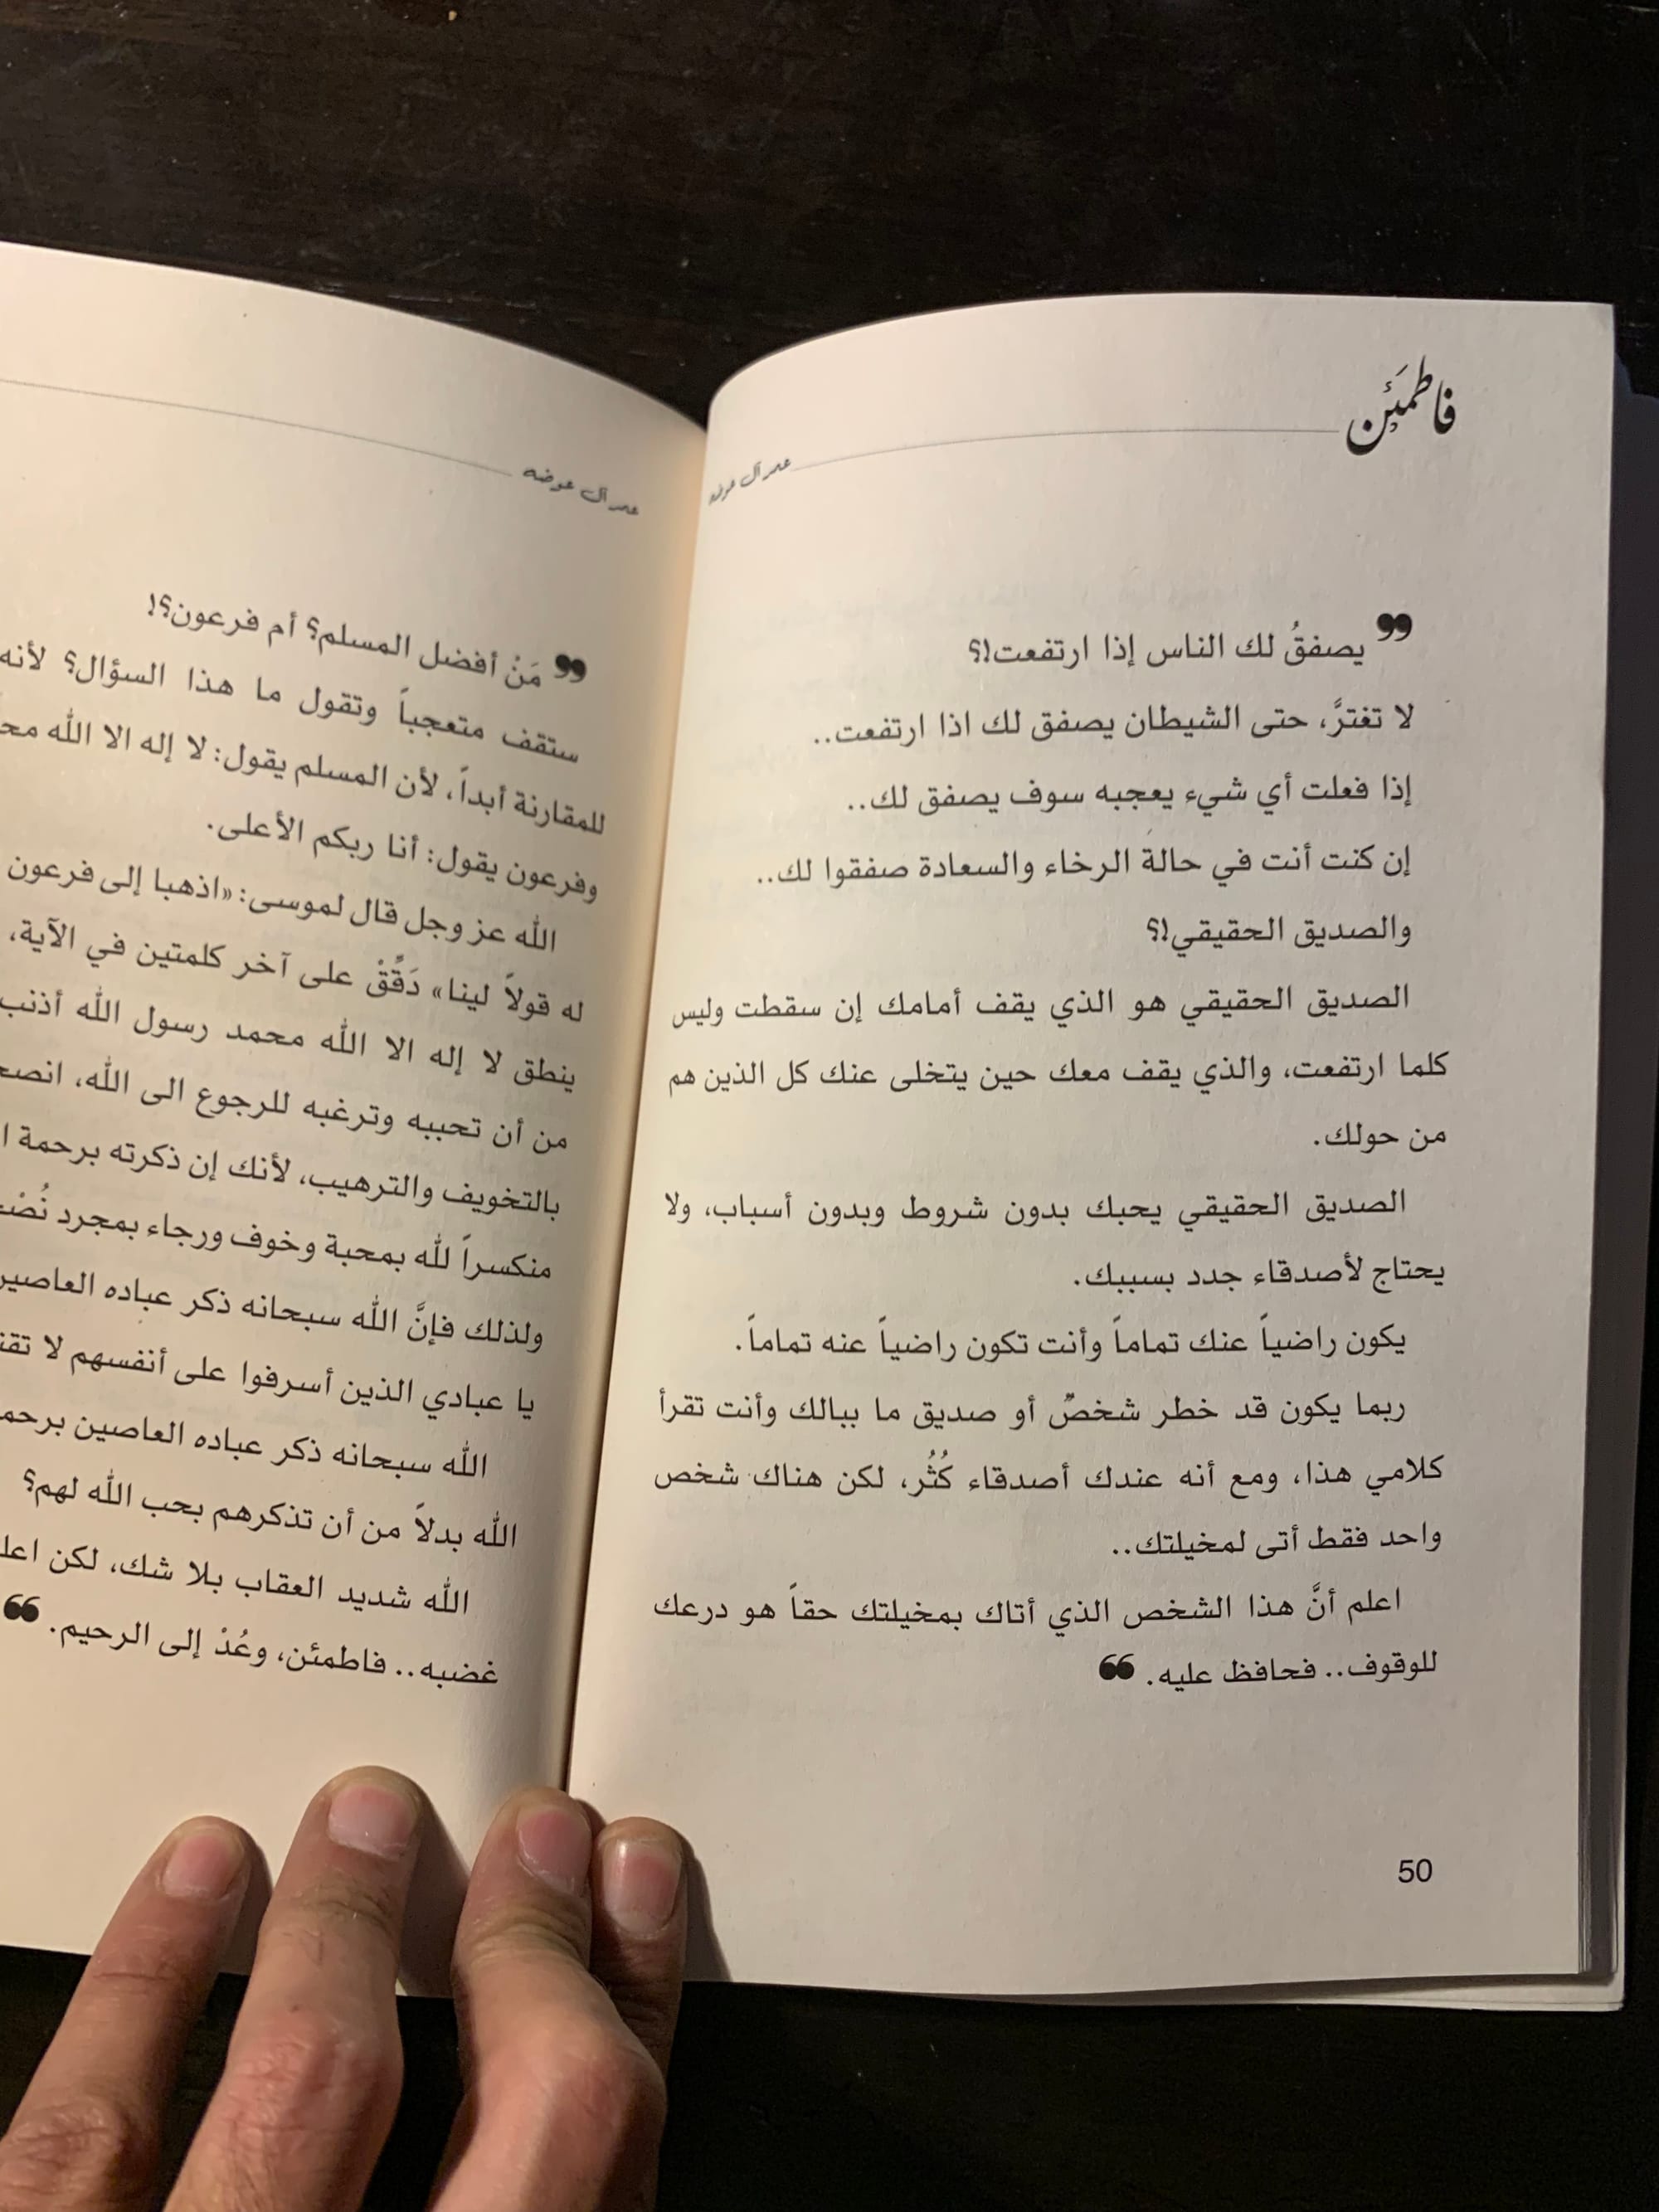 فاطمَئِن
عمر آل عوضه
❞ يصفقُ لك الناس إذا ارتفعت!؟
لا تغترَّ، حتى الشيطان يصفق لك اذا ارتفعت..
إذا فعلت أي شيء يعجبه سوف يصفق لك..
إن كنت أنت في حالة الرخاء والسعادة صفقوا لك..
والصديق الحقيقي!؟
الصديق الحقيقي هو الذي يقف أمامك إن سقطت وليس
كلما ارتفعت، والذي يقف معك حين يتخلى عنك كل الذين هم
من حولك.
الصديق الحقيقي يحبك بدون شروط وبدون أسباب، ولا
يحتاج لأصدقاء جدد بسببك.
يكون راضياً عنك تماماً وأنت تكون راضياً عنه تماماً.
ربما يكون قد خطر شخصٌ أو صديق ما ببالك وأنت تقرأ
كلامي هذا، ومع أنه عندك أصدقاء كُثُر، لكن هناك شخص
واحد فقط أتى لمخيلتك..
اعلم أنَّ هذا الشخص الذي أتاك بمخيلتك حقاً هو درعك
للوقوف.. فحافظ عليه. ❝
50
عمر آل عوضه
❞ مَنْ أفضل المسلم؟ أم فرعون؟!
ستقف متعجباً وتقول ما هذا السؤال؟ لأنه
للمقارنة أبداً، لأن المسلم يقول: لا إله الا الله
وفرعون يقول: أنا ربكم الأعلى.
الله عز وجل قال لموسى: «اذهبا إلى فرعون
له قولاً لينا» دَقِّقْ على آخر كلمتين في الآية،
ينطق لا إله الا الله محمد رسول الله أذنب
من أن تحببه وترغبه للرجوع الى الله،
بالتخويف والترهيب، لأنك إن ذكرته برحمة
منكسراً لله بمحبة وخوف ورجاء بمجرد
ولذلك فإنَّ الله سبحانه ذكر عباده
يا عبادي الذين أسرفوا على أنفسهم لا
الله سبحانه ذكر عباده العاصين
الله بدلاً من أن تذكرهم بحب الله لهم؟
الله شديد العقاب بلا شك، لكن
غضبه.. فاطمئن، وعُدْ إلى الرحيم. ❝